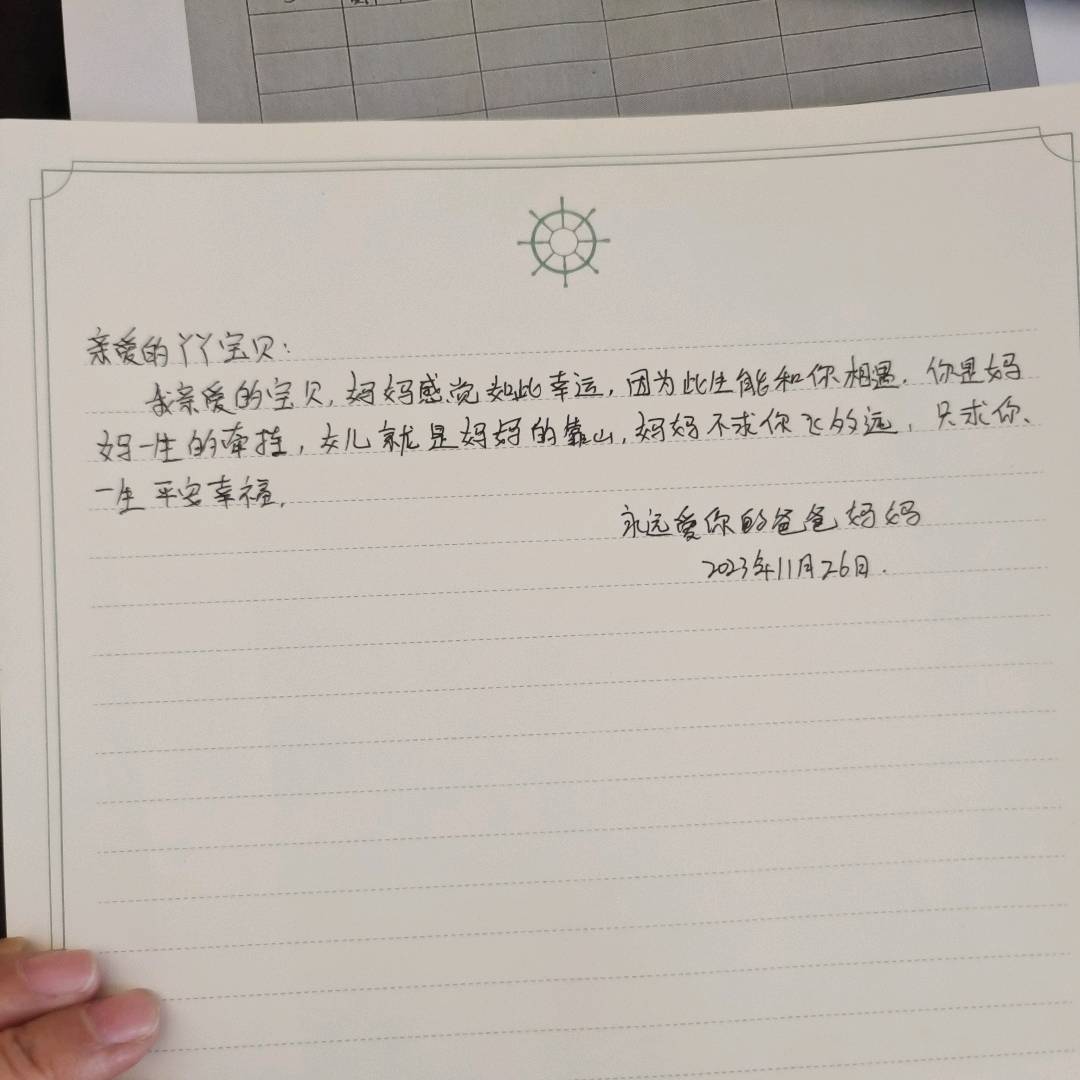 亲爱的丫丫宝贝:
我亲爱的宝贝,妈妈感觉如此幸运,因为此生能和你相遇.你是妈
妈一生的牵挂,女儿就是妈妈的靠山,妈妈不求你飞的远,只求你、
一生平安幸福.
永远爱你的爸爸妈妈
2023年11月26日.